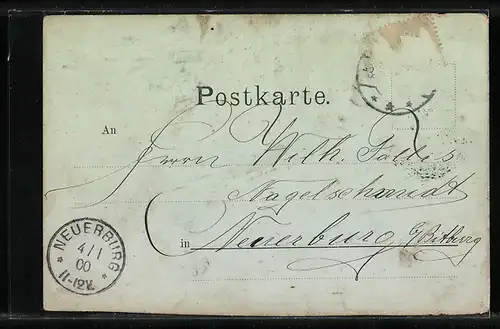 Postkarte.
An
Herrn Wilh.
Nagelschmidt
in Neuerburg b/Bitburg
NEUERBURG
4/1
00
11-12V.